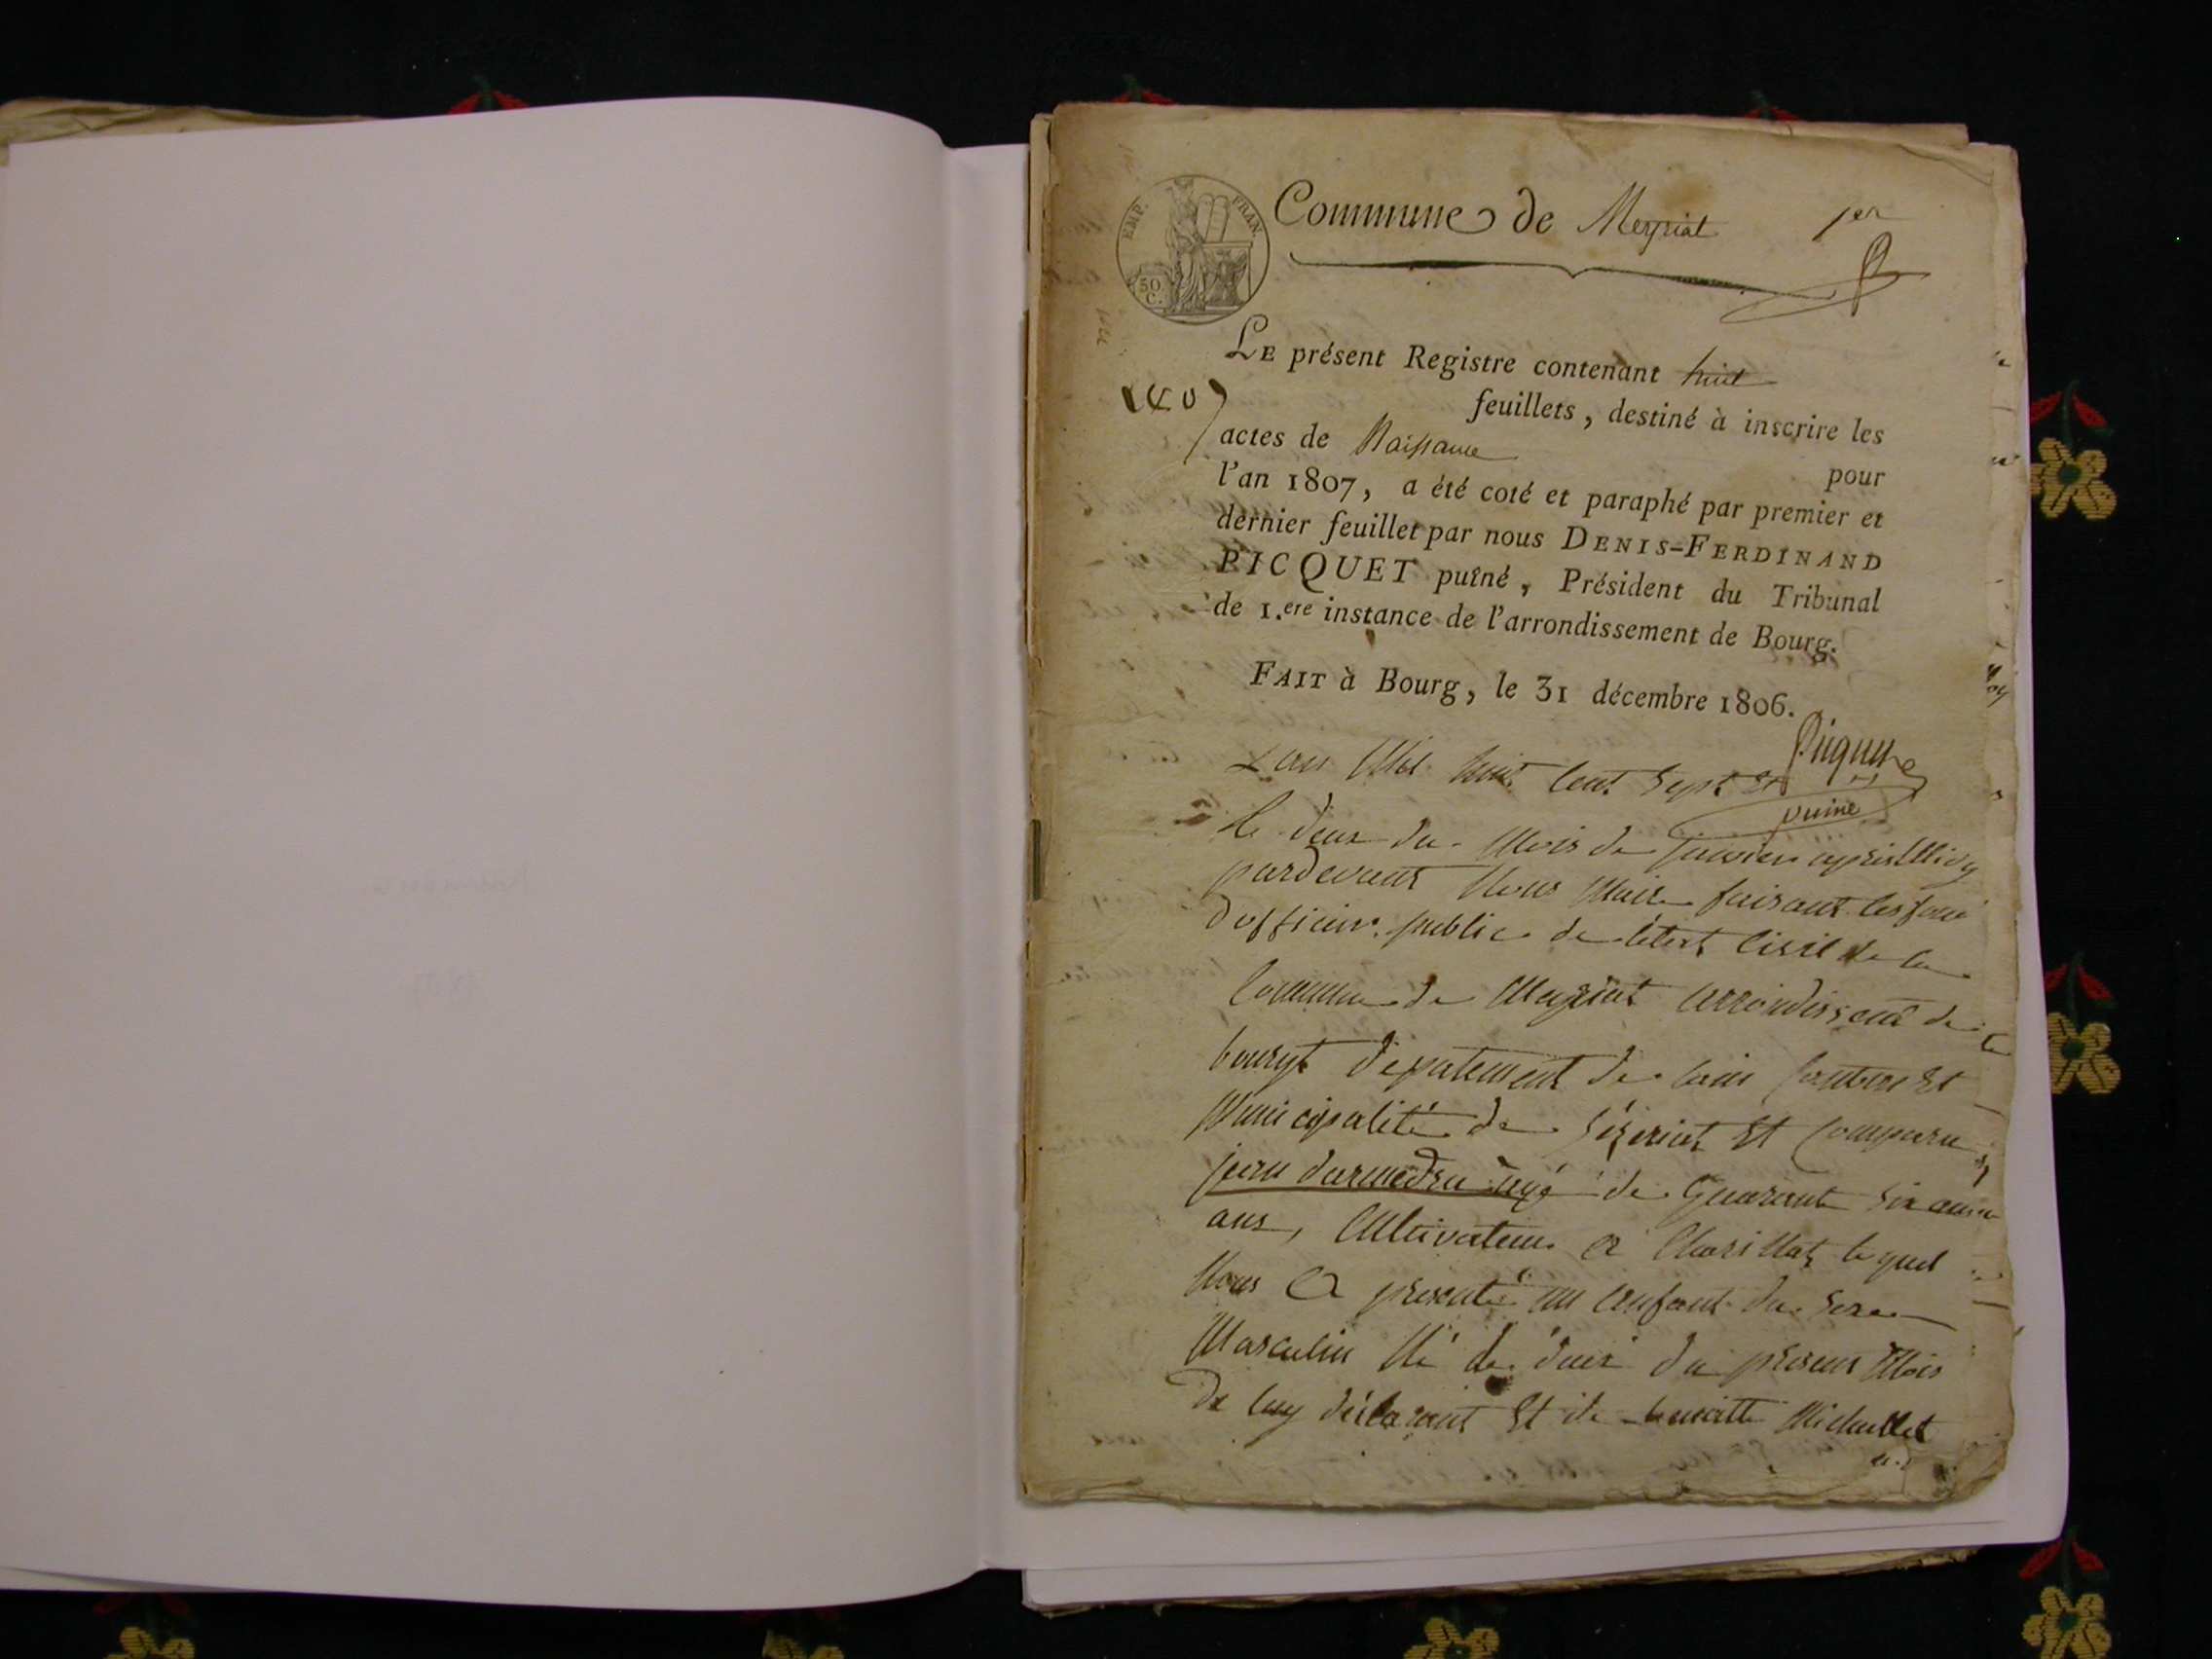 EMP. FRAN.
50 C.
Commune de Meyriat 1er
LE présent Registre contenant huit
feuillets, destiné à inscrire les
actes de Naissance
pour
l'an 1807, a été coté et paraphé par premier et
dernier feuillet par nous DENIS-FERDINAND
PICQUET puîné, Président du Tribunal
de 1.ere instance de l'arrondissement de Bourg.
FAIT à Bourg, le 31 décembre 1806.
Picquet
puiné
L'an Mil huit Cent Sept Et
le deux du Mois de janvier apres Midy
pardevant Nous Maire faisant les
d'officier public de létat Civil de la
Commune de Meyriat arrondissent de
bourg departement de lain Et
Municipalité de Et Comparu
jean darmedru agé de Quarante Six
ans, Cultivateur a lequel
Nous a presenté un Enfant du Sexe
Masculin Né le du present Mois
De luy déclarant Et de benoitte Michallet